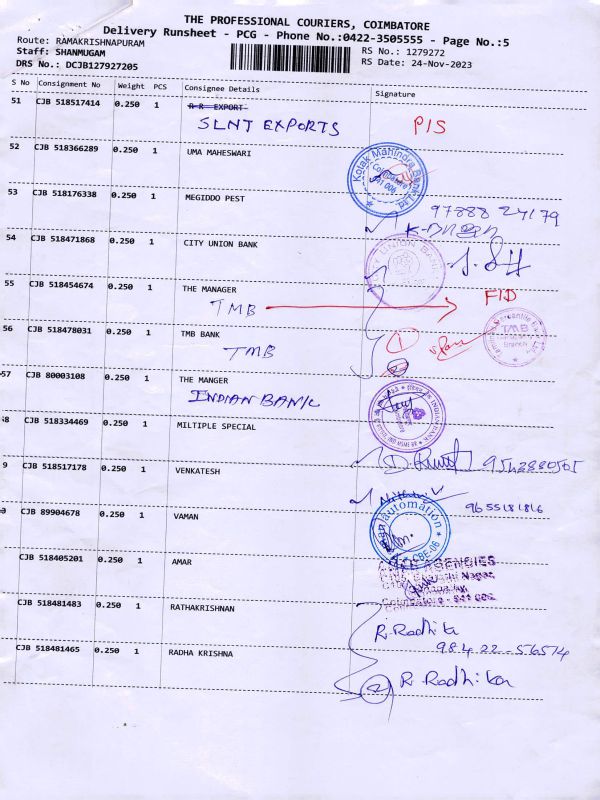 THE PROFESSIONAL COURIERS, COIMBATORE
Delivery Runsheet - PCG - Phone No.:0422-3505555 - Page No.:5
Route: RAMAKRISHNAPURAM
RS No.: 1279272
Staff: SHANMUGAM
RS Date: 24-Nov-2023
DRS No.: DCJB127927205
S No Consignment No Weight PCS Consignee Details Signature
51 CJB 518517414 0.250 1 R R EXPORT
SLNT EXPORTS PIS
52 CJB 518366289 0.250 1 UMA MAHESWARI
Kotak Mahindra Bank Ltd
Coimbatore
53 CJB 518176338 0.250 1 MEGIDDO PEST
97888 24179
54 CJB 518471868 0.250 1 CITY UNION BANK
CITY UNION BANK
55 CJB 518454674 0.250 1 THE MANAGER
TMB FID
56 CJB 518478031 0.250 1 TMB BANK
TMB 1
TMB
Branch
2
57 CJB 80003108 0.250 1 THE MANGER
INDIAN BANK
INDIAN BANK
58 CJB 518334469 0.250 1 MILTIPLE SPECIAL
9 CJB 518517178 0.250 1 VENKATESH
0 CJB 89904678 0.250 1 VAMAN
9655181816
automation
CBE-06
CJB 518405201 0.250 1 AMAR
AGENCIES
Nagar
Coimbatore - 641 006
CJB 518481483 0.250 1 RATHAKRISHNAN
R. Radhika
98422-56574
CJB 518481465 0.250 1 RADHA KRISHNA
2 R. Radhika